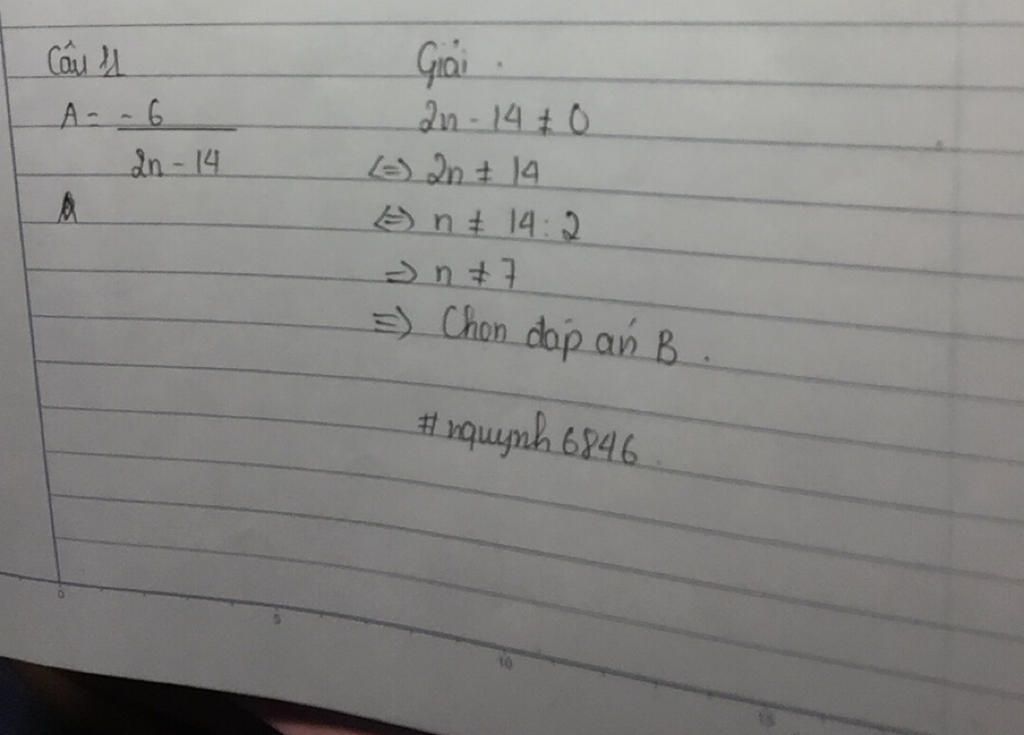 Câu 11
A = -6
2n - 14
Giải.
2n - 14 ≠ 0
<=> 2n ≠ 14
<=> n ≠ 14 : 2
=> n ≠ 7
=> Chọn đáp án B.
#nquynh6846
0 5 10 15